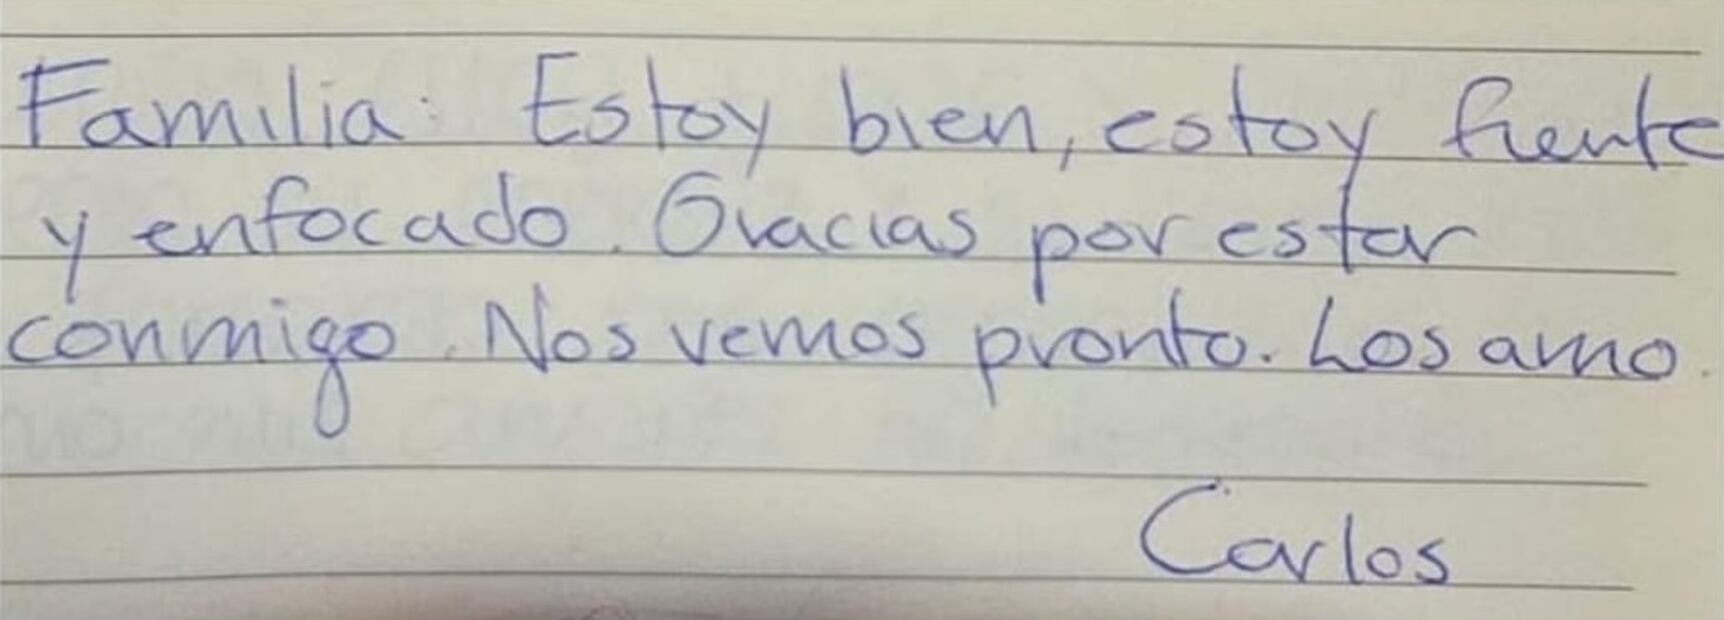 Familia: Estoy bien, estoy fuente
y enfocado. Gracias por estar
conmigo. Nos vemos pronto. Los amo.
Carlos